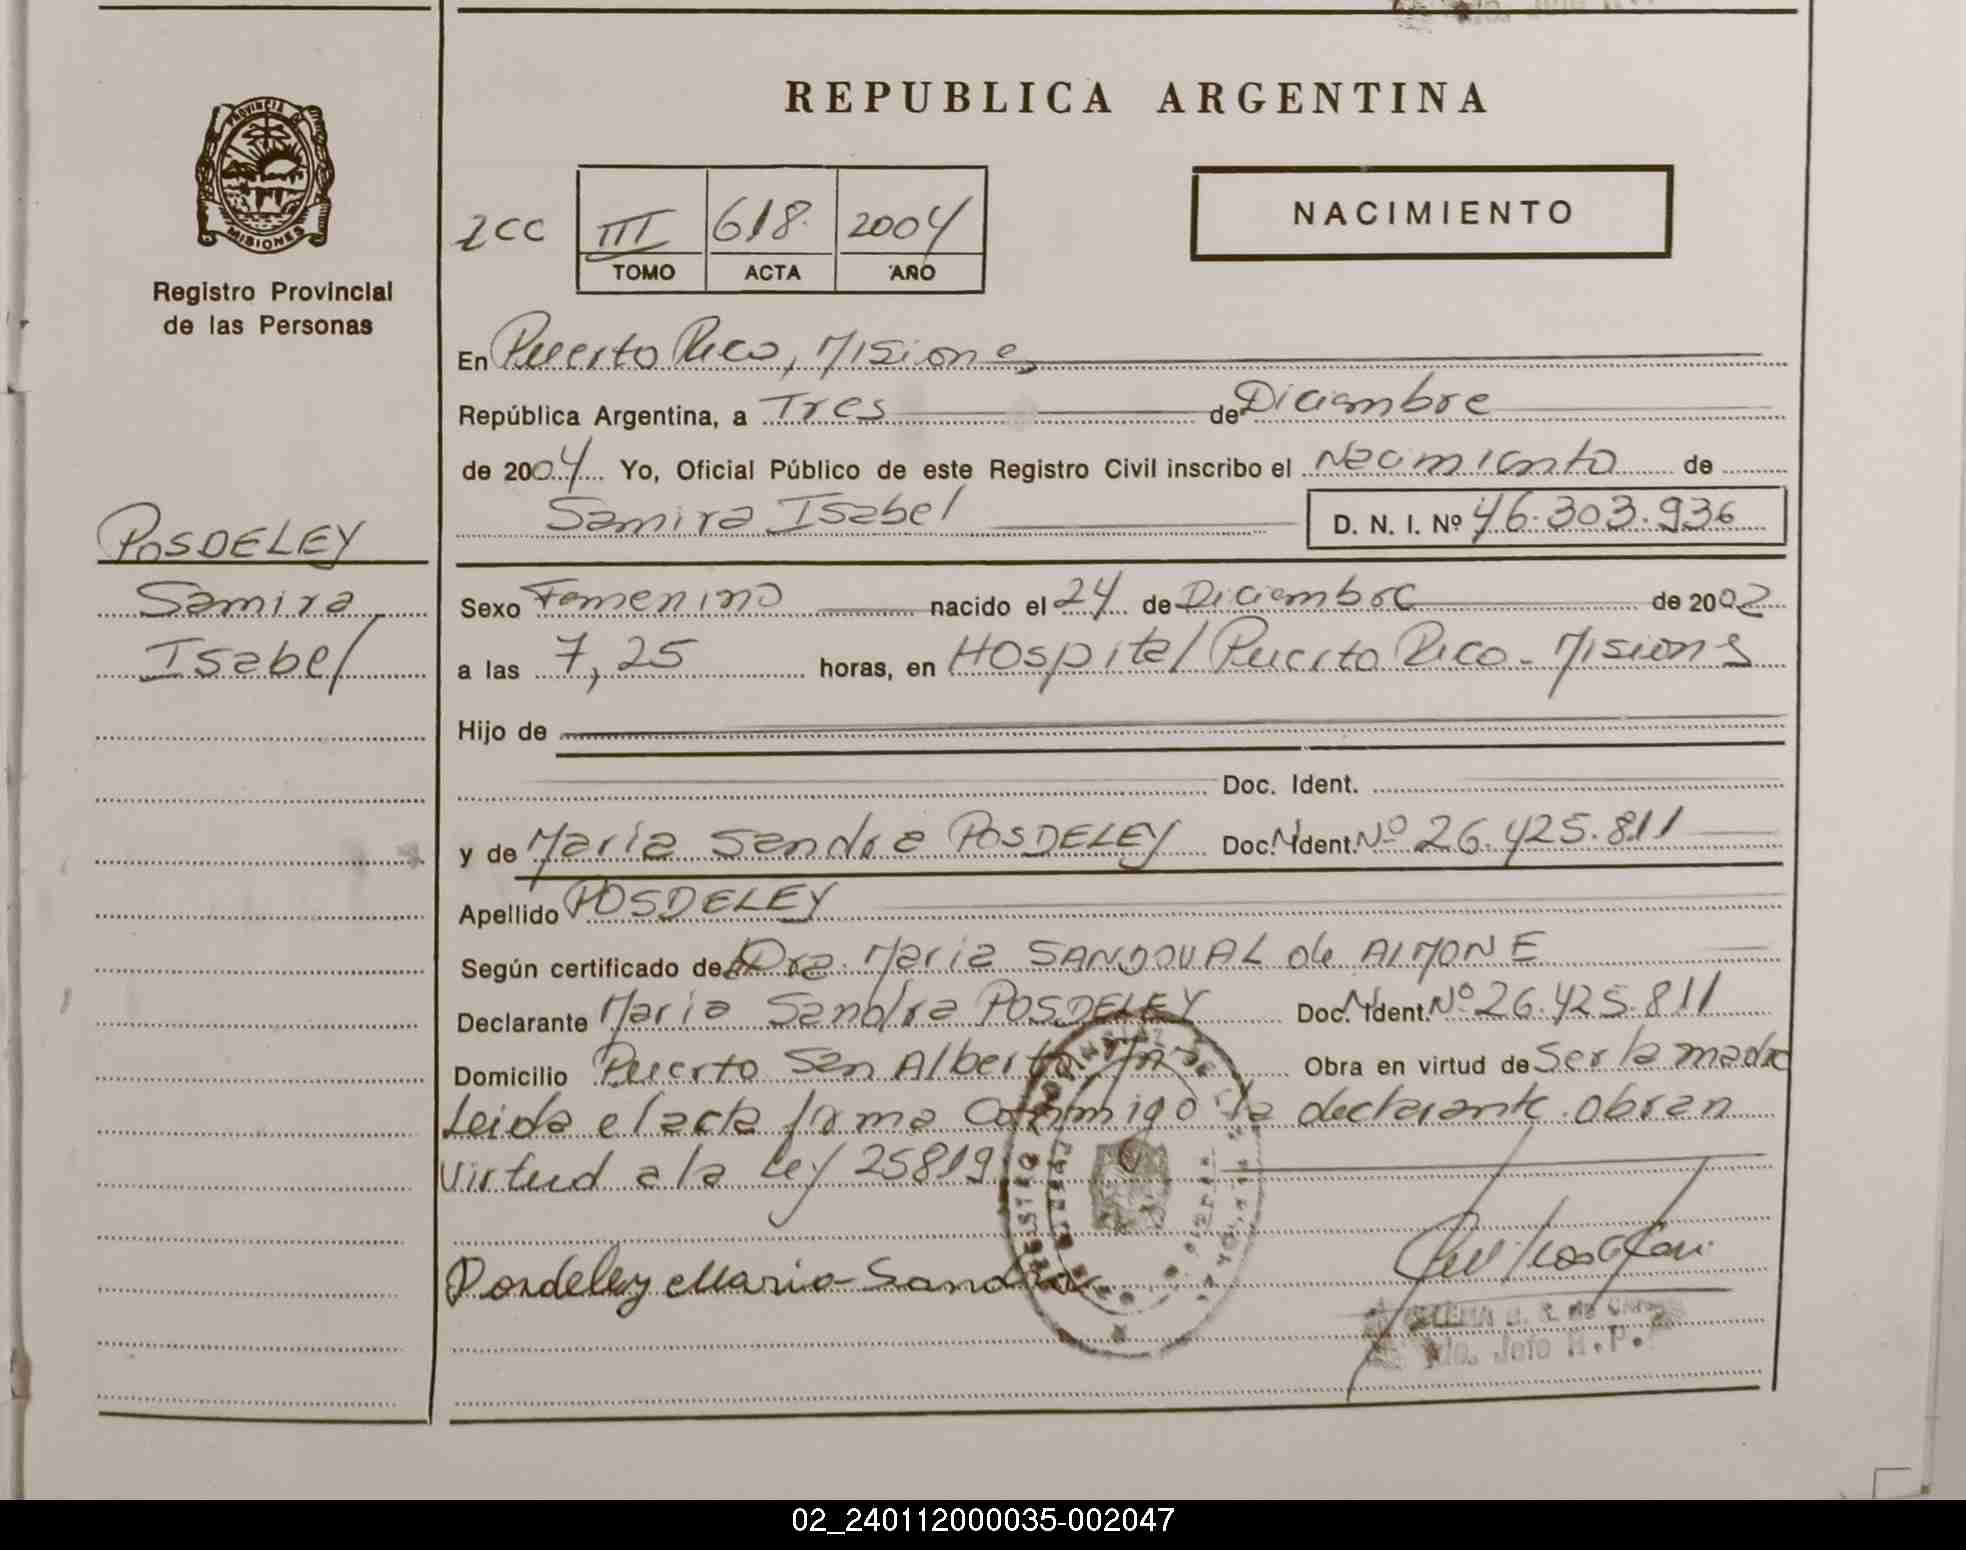 REPUBLICA ARGENTINA
PROVINCIA DE
MISIONES
Registro Provincial
de las Personas
2CC III 618 2004
TOMO ACTA AÑO
NACIMIENTO
En Puerto Rico, Misiones
República Argentina, a Tres de Diciembre
de 2004 Yo, Oficial Público de este Registro Civil inscribo el Nacimiento de
Samira Isabel D. N. I. Nº 46.303.936
POSDELEY
Samira
Isabel
Sexo Femenino nacido el 24 de Diciembre de 2002
a las 7,25 horas, en Hospital Puerto Rico - Misiones
Hijo de
Doc. Ident.
y de Maria Sandra POSDELEY Doc. Ident. Nº 26.425.811
Apellido POSDELEY
Según certificado de Dra. Maria SANDOVAL de ALMONE
Declarante Maria Sandra POSDELEY Doc. Ident. Nº 26.425.811
Domicilio Puerto San Alberto, Mns Obra en virtud de Ser la madre
Leida el acta firma conmigo la declarante. obran
virtud a la Ley 25819
Posdeley Maria Sandra
02_240112000035-002047